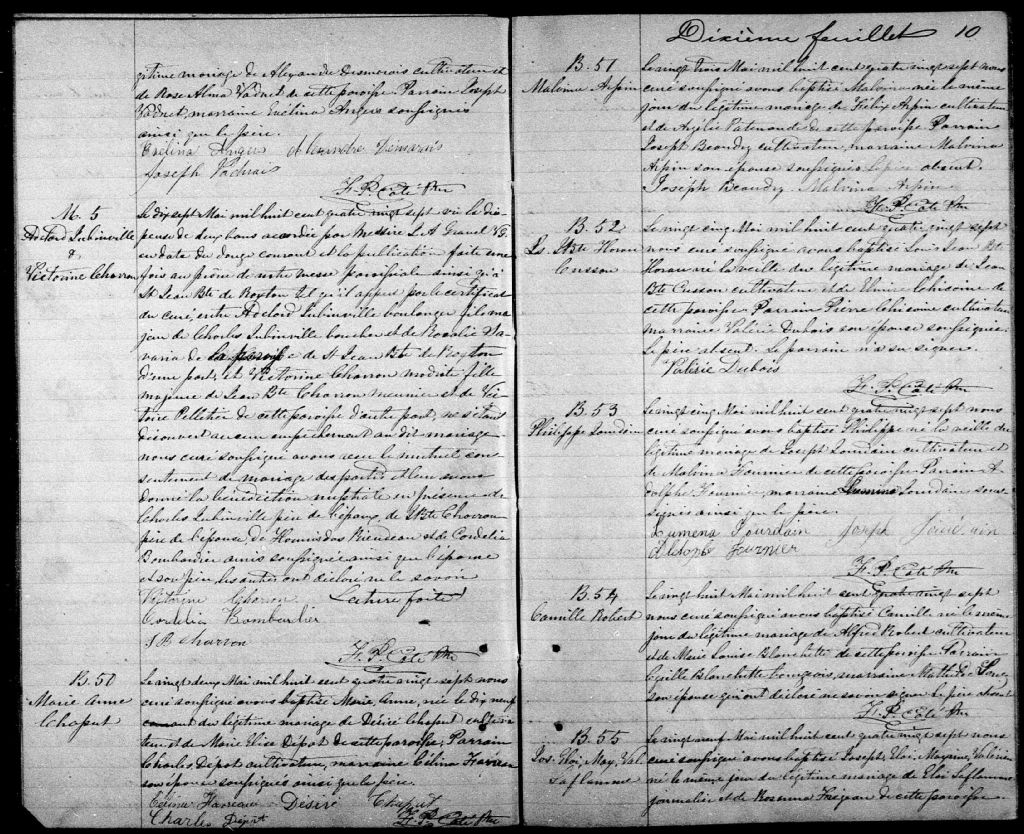 gitime mariage de Alexandre Desmarais cultivateur et
de Rose Alma Vadnet de cette paroisse Parrain Joseph
Vadnet, marraine Exélina Angers soussignés
ainsi que le père.
Exelina Angers Alexandre Demarais
Joseph Vadnais
F. P. Côté Ptre
M. 5
Adélord Lubinville
&
Victorine Charron
Le dix sept Mai mil huit cent quatre vingt sept vu la dis-
pense de deux bans accordée par Messire L. A. Gravel V.G.
en date du douze courant et la publication faite une
fois au prône de notre messe paroissiale ainsi qu'à
St Jean Bte de Roxton tel qu'il appert par le certificat
du curé, entre Adélord Lubinville boulanger fils ma
jeur de Charles Lubinville boucher et de Rosalie Sa-
varia de la paroisse de St Jean Bte de Roxton
d'une part, et Victorine Charron modiste fille
majeure de Jean Bte Charron meunier et de Vic-
toire Pelletier de cette paroisse d'autre part, ne s'étant
découvert aucun empêchement au dit mariage
nous curé soussigné avons reçu le mutuel con-
sentement de mariage des parties et leur avons
donné la bénédiction nuptiale en présence de
Charles Lubinville père de l'époux de J Bte Charron
père de l'épouse de Hormisdas Riendeau et de Cordélia
Bombardier amis soussignés ainsi que l'épouse
et son père les autres ont déclaré ne le savoir
Victorine Charron Lecture faite
Cordelia Bombardier
J B Charron
F. P. Côté Ptre
B. 50
Marie Anne
Chaput
Le vingt deux Mai mil huit cent quatre vingt sept nous
curé soussigné avons baptisé Marie, Anne, née le dix neuf
courant du légitime mariage de Désiré Chaput cultiva
teur et de Marie Elise Dépôt de cette paroisse, Parrain
Charles Dépôt cultivateur, marraine Célina
son épouse soussignés ainsi que le père.
Célina Désiré Chaput
Charles Dépot F. P. Côté Ptre
Dixième feuillet 10
B. 51
Malvina Arpin
Le vingt trois Mai mil huit cent quatre vingt sept nous
curé soussigné avons baptisé Malvina née le même
jour du légitime mariage de Félix Arpin cultivateur
et de Azélie Patenaude de cette paroisse Parrain
Joseph Beaudry cultivateur, marraine Malvina
Arpin son épouse soussignés le père absent.
Joseph Beaudry Malvina Arpin
F. P. Côté Ptre
B. 52
Ls. J Bte Horan
Cusson
Le vingt cinq Mai mil huit cent quatre vingt sept
nous curé soussigné avons baptisé Louis Jean Bte
Horan né la veille du légitime mariage de Jean
Bte Cusson cultivateur et de Elmire Chicoine de
cette paroisse Parrain Pierre Chicoine cultivateur
marraine Valérie Dubois son épouse soussignée
Le père absent. Le parrain n'a su signer.
Valérie Dubois
F. P. Côté Ptre
B. 53
Philippe Jourdain
Le vingt cinq Mai mil huit cent quatre vingt sept nous
curé soussigné avons baptisé Philippe né la veille du
légitime mariage de Joseph Jourdain cultivateur et
de Malvina Fournier de cette paroisse Parrain A-
dolphe Fournier, marraine Lumina Jourdain sous-
signés ainsi que le père.
Lumena Jourdain Joseph Jourdain
Adolphe Fournier
F. P. Côté Ptre
B. 54
Camille Robert
Le vingt huit Mai mil huit cent quatre vingt sept
nous curé soussigné avons baptisé Camille né le même
jour du légitime mariage de Alfred Robert cultivateur
et de Marie Louise Blanchette de cette paroisse Parrain
Cyrille Blanchette bourgeois, marraine Mathilde
son épouse qui ont déclaré ne savoir signer le père absent
F. P. Côté Ptre
B. 55
Jos. Eloi, Max. Val.
Laflamme
Le vingt neuf Mai mil huit cent quatre vingt sept nous
curé soussigné avons baptisé Joseph, Eloi, Maxime, Valérien
né le même jour du légitime mariage de Eloi Laflamme
journalier et de Rosanna de cette paroisse.